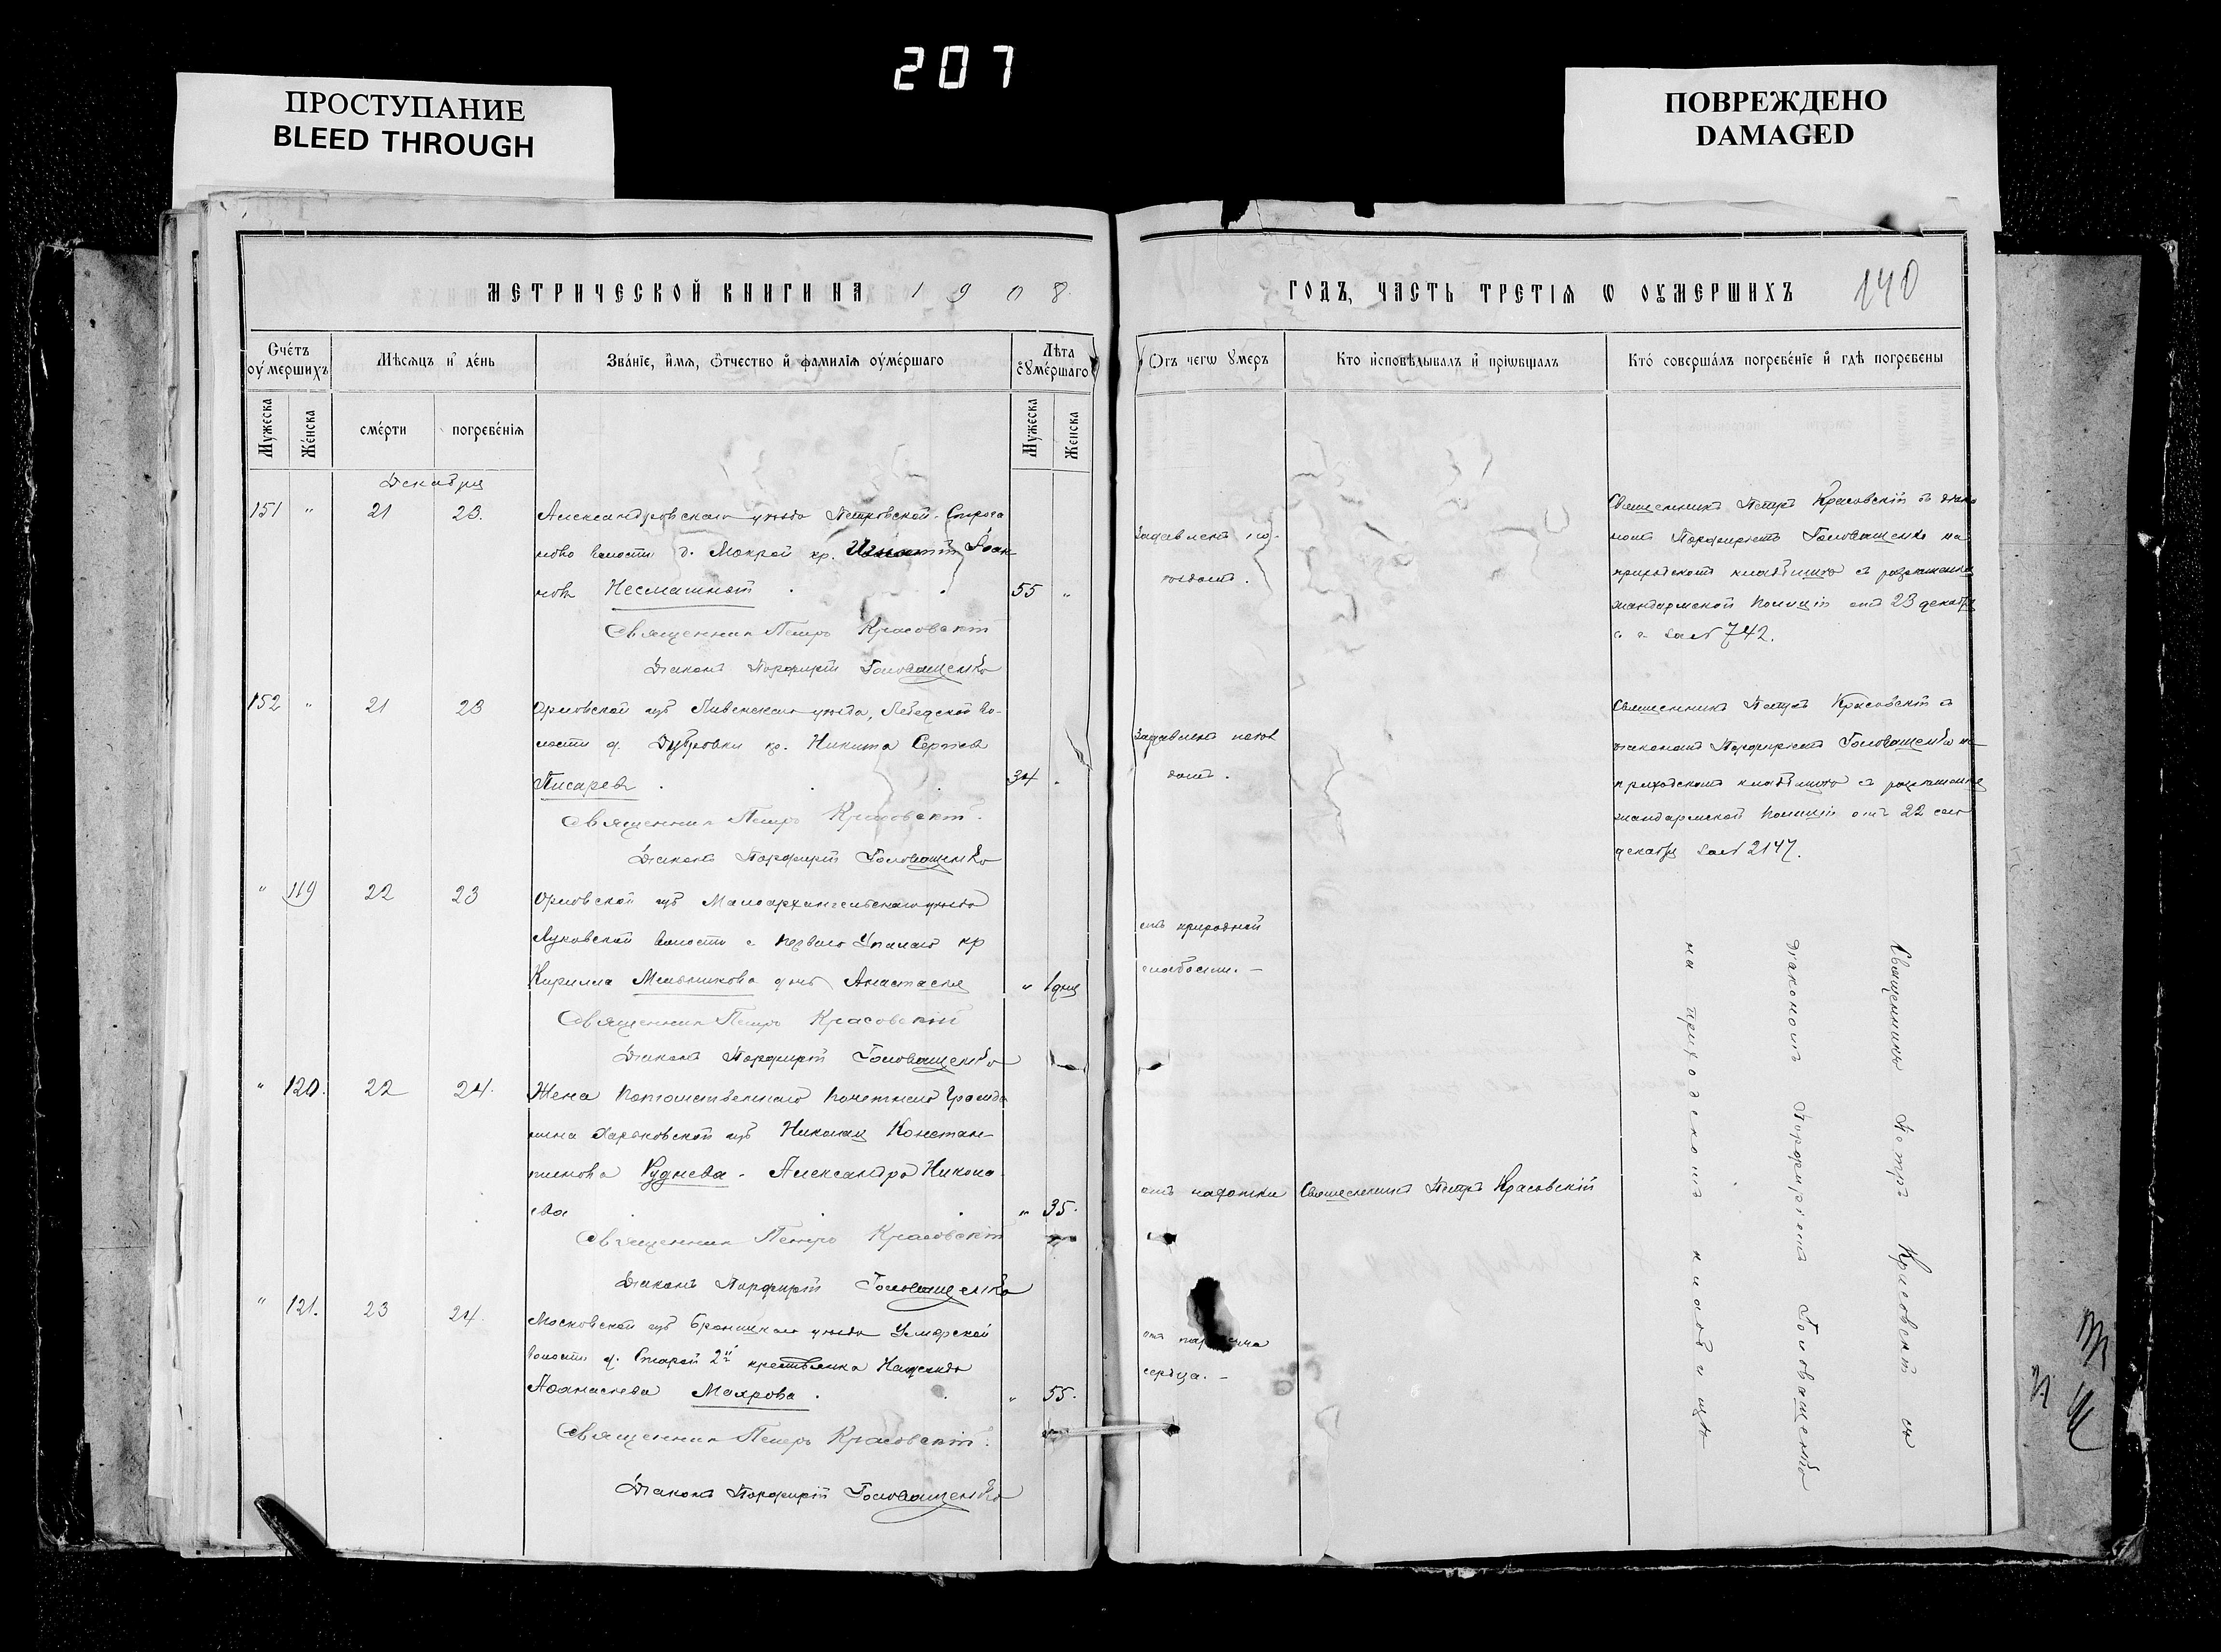 207
ПРОСТУПАНИЕ
BLEED THROUGH
ПОВРЕЖДЕНО
DAMAGED
МЕТРИЧЕСКОЙ КНИГИ НА 1908
ГОДЪ, ЧАСТЬ ТРЕТІЯ Ѡ ОУМЕРШИХЪ
140
Счетъ оумершихъ
Мѣсяцъ и день
Званіе, имя, отчество и фамилія оумершаго
Лѣта оумершаго
Мужеска
Женска
смерти
погребенія
Мужеска
Женска
Отъ чегѡ умеръ
Кто исповѣдывалъ и пріѡбщалъ
Кто совершалъ погребеніе и гдѣ погребены
Декабря
151 " 21 23.
Александровскаго уѣзда Петровской
волости д. Мокрой кр. Іоан-
новъ Несмашной 55 "
Священникъ Петръ Красовскій
Діаконъ Порфирій Головащенко
задавленъ
поѣздомъ.
Священникъ Петръ Красовскій съ діако
номъ Порфиріемъ Головащенко на
приходскомъ кладбищѣ съ разрѣшенія
жандармской полиціи отъ 23 декабря
с. г. за № 742.
152 " 21 23
Орловской губ Ливенскаго уѣзда, во-
лости д. Дубровки кр. Никита Сергѣевъ
Писаревъ 34
Священникъ Петръ Красовскій
Діаконъ Порфирій Головащенко
задавленъ поѣз
домъ.
Священникъ Петръ Красовскій съ
діакономъ Порфиріемъ Головащенко на
приходскомъ кладбищѣ съ разрѣшенія
жандармской полиціи отъ 22 сего
декабря за № 2147.
" 119 22 23
Орловской губ Малоархангельскаго уѣзда
Луковской волости с. кр
Кирилла Мельникова дочь Анастасія " 1 дня
Священникъ Петръ Красовскій
Діаконъ Порфирій Головащенко
отъ природной
слабости. —
" 120. 22 24.
Жена потомственнаго почетнаго гражда
нина Харьковской губ Николая Констан-
тинова Руднева. Александра Никола-
ева " 35.
Священникъ Петръ Красовскій
Діаконъ Порфирій Головащенко
отъ чахотки
Священникъ Петръ Красовскій
" 121. 23 24
Московской губ Бронницкаго уѣзда Усмерской
волости д. Старой 2й крестьянка Надежда
Афанасьева Маярова. " 55.
Священникъ Петръ Красовскій
Діаконъ Порфирій Головащенко
отъ
сердца. —
Священникъ Петръ Красовскій съ
діакономъ Порфиріемъ Головащенко
на приходскомъ кладбищѣ